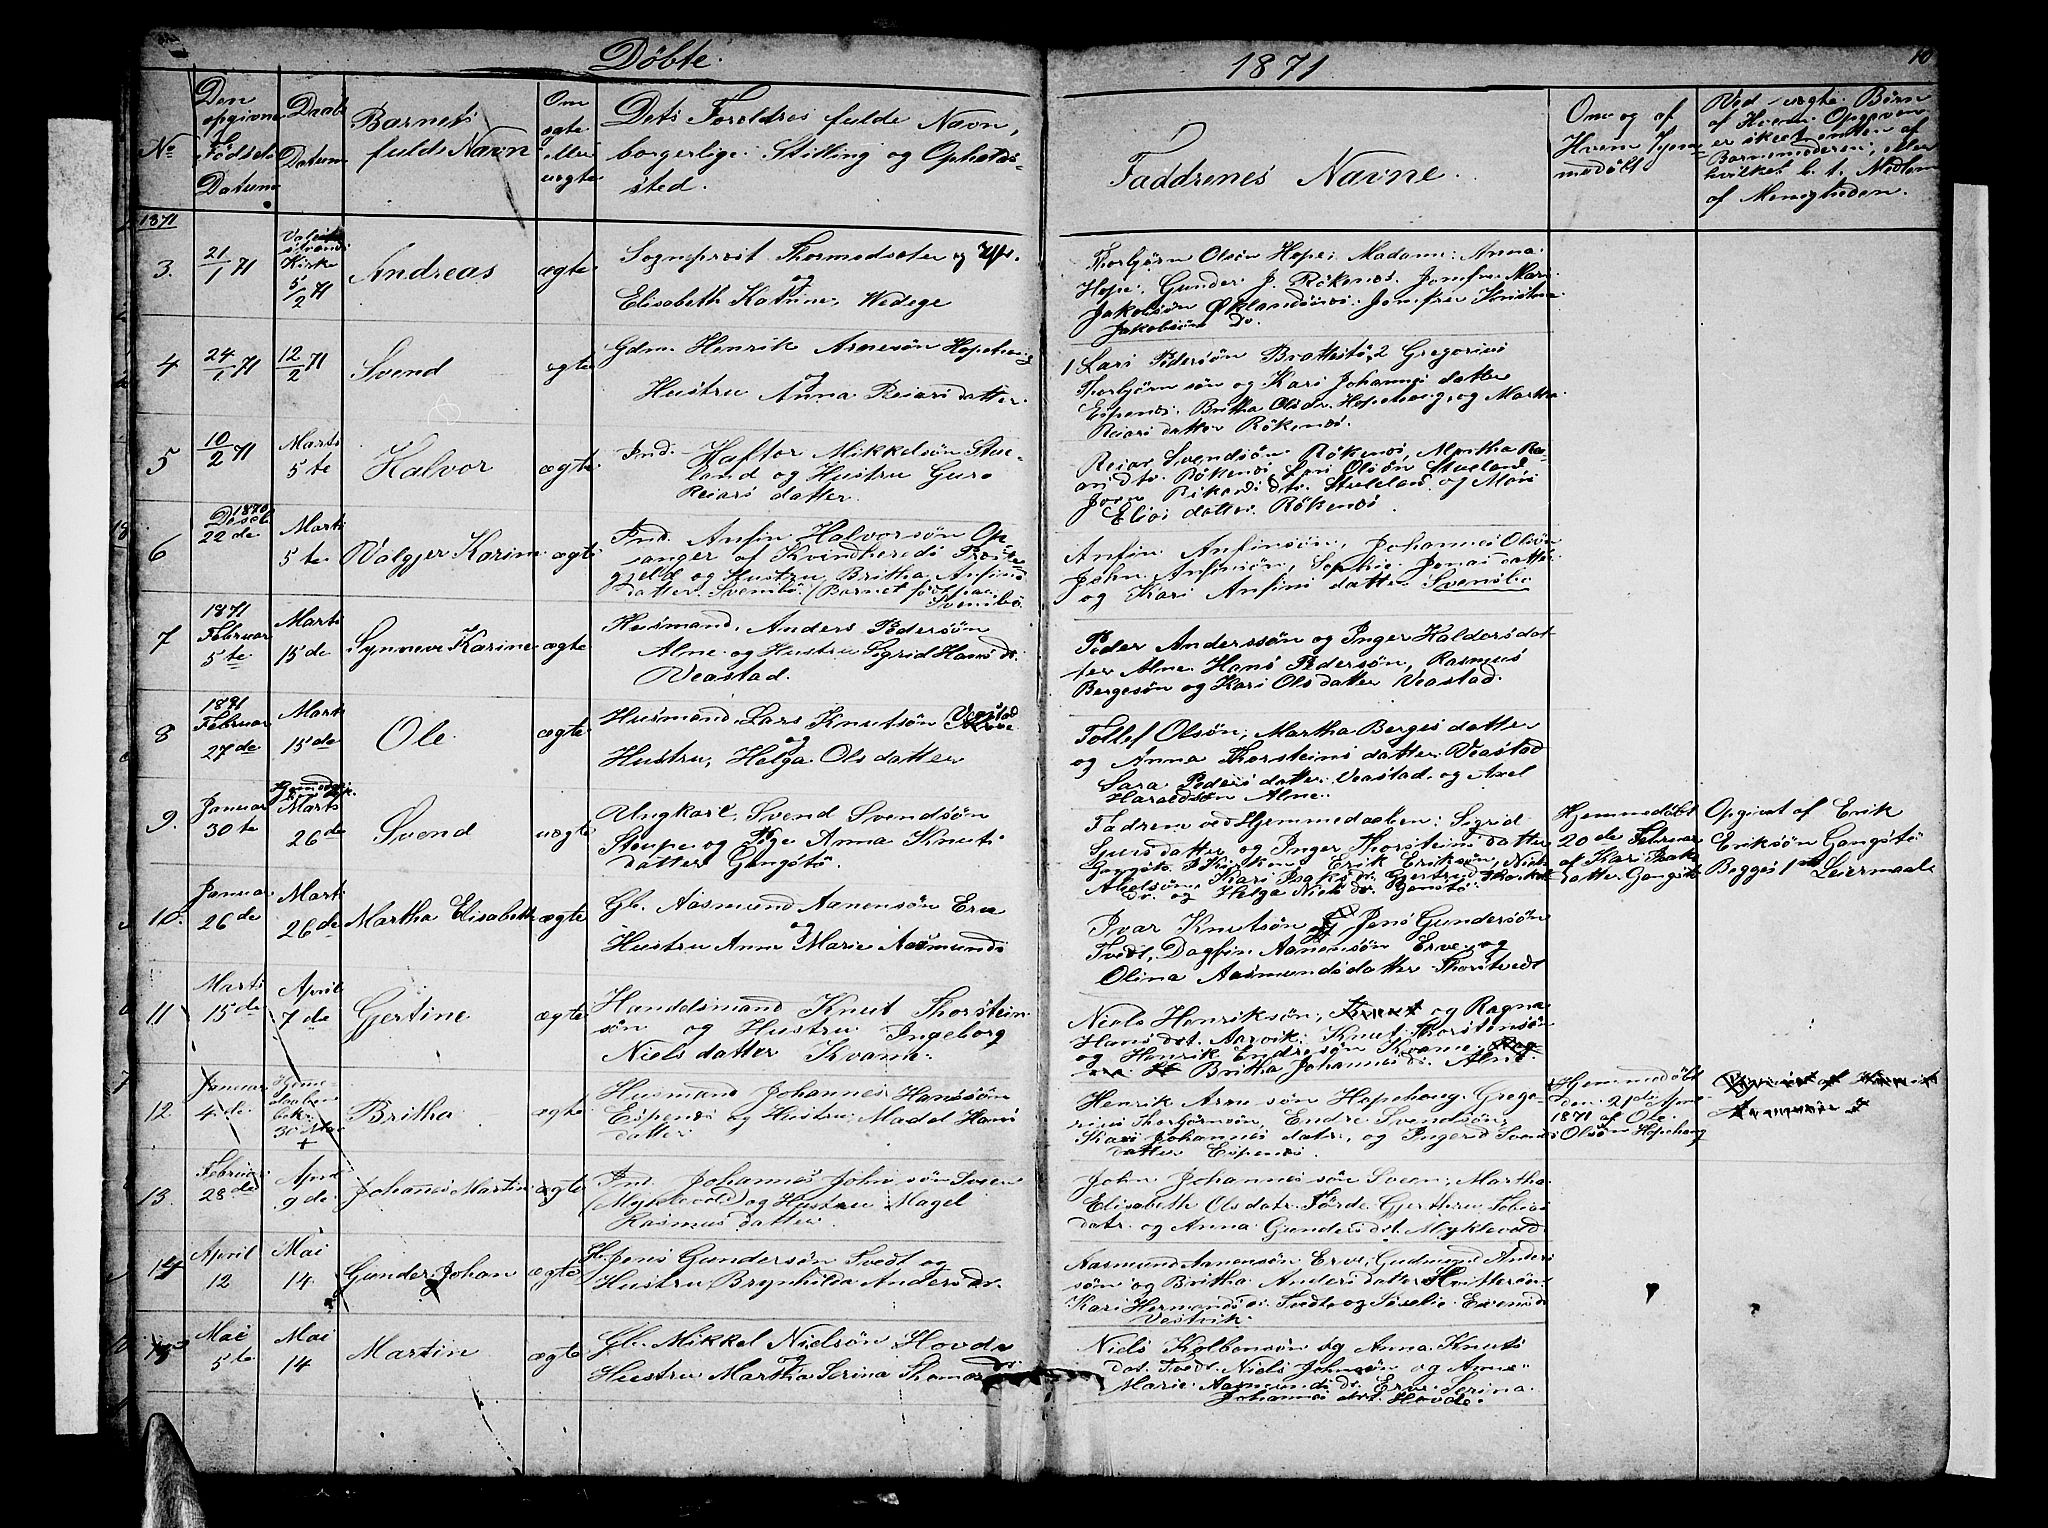 Döbte.
1871
10
No
Den
opgivne
Födsels
Datum
Daab
Datum
Barnets
fulde Navn
Om
ægte
eller
uægte
Dets Foreldres fulde Navn,
borgerlige Stilling og Opholds-
sted.
Faddrenes Navne.
Om og af
Hvem Hjem-
medöbt
Ved uægte Börn
af Hvem Opgiven
er skeet enten af
Barnemoderen, eller
hvilket b. t. Medlem
af Menigheden.
1871
3.
21/1 71
Kirke
5/2 71
Andreas
ægte
Sogneprest Thormodsæter og
og
Elisabeth Katrine, Wedege
Thorbjörn Olsön Hope, Madame Anna
Hope, Gunder J. Rökenes, Jomfru Mari
Jakobsön Öklandsvos. Jomfru Kristine
Jakobsön do.
4
24/1 71
12/2 71
Svend
ægte
Gdm. Henrik Arnesön Hopehaug
og
Hustru Anna Reiarsdatter.
1 Lars Pedersön Brattestö, 2 Gregorius
Thorbjörnsön og Kari Johannesdatter
Espenes. Britha Olsdr. Hopehaug, og Martha
Reiarsdatter Rökenes.
5
10/2 71
Marts
5te
Halvor
ægte
Ind. Haftor Mikkelsön Stue-
land og Hustru Guro
Reiarsdatter.
Reiar Svendsön Rökenes, Martha Rei-
arsdtr. Rökenes, Olsön Stueland
Stueland og Mari
Eliasdatter Rökenes
6
1870
Desebr
22de
Marts
5te
Valgjer Karine
ægte
Ind. Anfin Halvorsön Op-
sanger af Kvindherreds Preste-
gjeld og Hustru Britha Anfins
datter Svensbö. (Barnet föd paa
Svensbö
Anfin Anfinsön, Johannes Olsön
John Anfinsön, Sophie Jonasdatter
og Kari Anfinsdatter Svensbö
7
1871
Februar
5te
Marts
15de
Synneve Karine
ægte
Husmand, Anders Pedersön
Alne og Hustru Sigrid Hansdr.
Veastad.
Peder Anderssön og Inger Haldorsdat-
ter Alne. Hans Pedersön, Rasmus
Bergesön og Kari Olsdatter Veastad.
8
1871
Februar
27de
Marts
15de
Ole.
ægte
Husmand Lars Knutsön Veastad
og
Hustru, Helga Olsdatter
Tollef Olsön, Martha Bergesdatter
og Anna Thorsteinsdatter Veastad
Sara Pedersdatter Veastad og Axel
Haraldsön Alne.
9.
Januar
30te
Marts
26de
Svend
uægte
Ungkarl Svend Svendsön
Stoupe og Pige Anna Knuts
datter Gangstö.
Fadrene ved Hjemmedaaben: Sigrid
Gursdatter og Inger Thorsteinsdatter
Gangstö. I Kirken Erik Eriksön, Niels
Abelsön, Kari Isaksdr. Gjertrud Thorkel
dr. og Helga Nielsdr. Gangstö.
Hjemmedöbt
20de Februar
af Kari Isaks
datter Gangstö
Opgivet af Erik
Eriksön Gangstö
Begges 1ste Leiermaal
10.
Januar
26de
Marts
26de
Martha Elisabeth
ægte
Gb. Aasmund Aanensön Erve
og
Hustru Anne Marie Aasmunds
Ivar Knutsön og Jens Gundersön
Tvedt, Dagfin Aanensön Erve og
Olina Aasmundsdatter Thorstvedt
11
Marts
15de
April
7de
Gjertine
ægte
Handelsmand Knut Thorstein
sön og Hustru Ingeborg
Nielsdatter Kvame.
Niels Henriksön, og Ragna
Hansdt. Aarvik. Knut Thorstensön
og Henrik Endresön Kvame.
Britha Johannesdr. Alne.
12.
Januar
4de
Hjeme-
daaben
bekr.
30 Mai
+
Britha
ægte
Husmand Johannes Hanssön
Espenes og Hustru, Madel Hans
datter
Henrik Arnesön Hopehaug, Grego-
rius Thorbjörnsön, Endre Svendsön,
Kari Johannesdatr., og Ingerd Svends
datter Espenes.
Hjemmedöbt
den 21de
1871 af Ole
Olsön Hopehaug
13.
Februar
28de
April
9de
Johanes Martin
ægte
Ind. Johannes Johnsön Sveen
(Myklevold) og Hustru Magel
Rasmusdatter.
John Johannessön Sveen, Martha
Elisabeth Olsdatr. Förde, Gjerthru Tobias
datr. og Anna Gundersdt. Myklevold.
14
April
12
Mai
14
Gunder Johan
ægte
Jens Gundersön Tvedt og
Hustru Brynhilda Andersdr.
Aasmund Aanensön Erve, Gudmund Anders
sön og Britha Andersdatter
Kari Hermansdr. Tvedt og
Vestvik.
15
Mai
5te
Mai
14
Martin
ægte
Gb. Mikkel Nielsön Hovde
og
Hustru Martha Serina Thomasdr.
Niels Kolbensön og Anna Knuts
dat. Tvedt. Niels Johnsön og Anne
Marie Aasmundsdr. Erve. Serina
Johannesdat. Hovde.